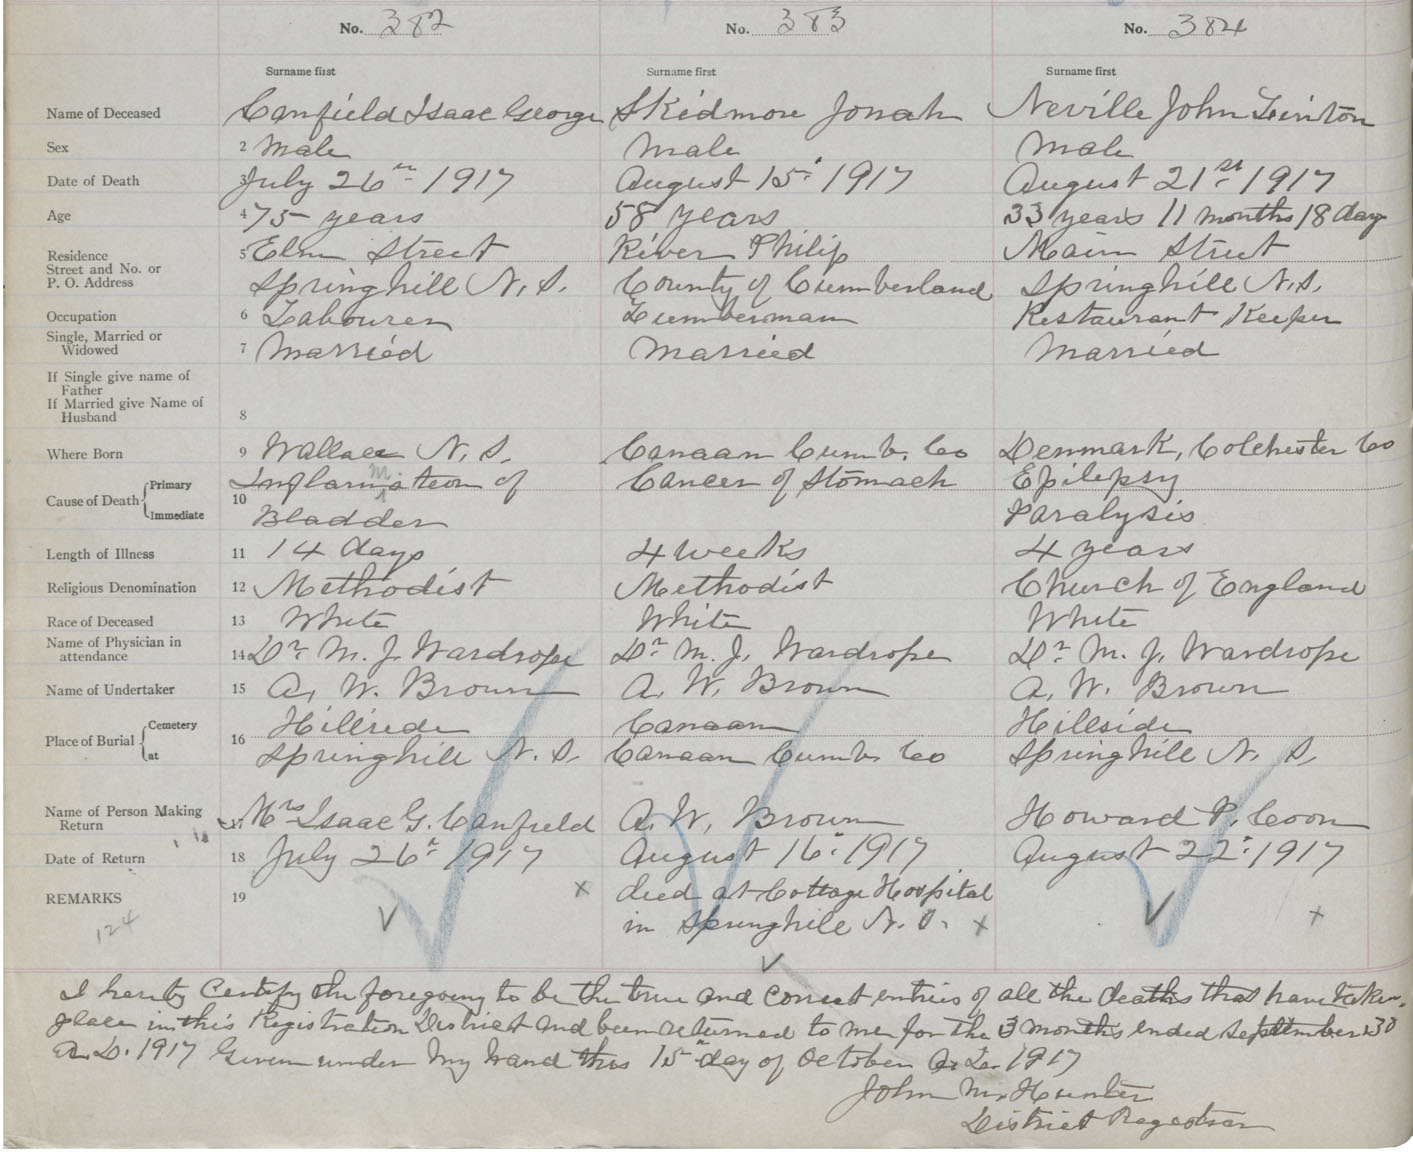 No. 382 No. 383 No. 384
Surname first Surname first Surname first
Name of Deceased Canfield Isaac George Skidmore Jonah Neville John Linton
Sex 2 Male Male Male
Date of Death 3 July 26th 1917 August 15th 1917 August 21st 1917
Age 4 75 years 58 years 33 years 11 months 18 days
Residence 5 Elm Street River Philip Main Street
Street and No. or
P. O. Address Springhill N. S. County of Cumberland Springhill N. S.
Occupation 6 Labourer Lumberman Restaurant Keeper
Single, Married or
Widowed 7 Married Married Married
If Single give name of
Father
If Married give Name of
Husband 8
Where Born 9 Wallace N. S. Canaan Cumb. Co Denmark, Colchester Co
Cause of Death Primary 10 Inflammation of Cancer of Stomach Epilepsy
Immediate Bladder Paralysis
Length of Illness 11 14 days 4 weeks 4 years
Religious Denomination 12 Methodist Methodist Church of England
Race of Deceased 13 White White White
Name of Physician in
attendance 14 Dr M. J. Wardrope Dr M. J. Wardrope Dr M. J. Wardrope
Name of Undertaker 15 A. W. Brown A. W. Brown A. W. Brown
Place of Burial Cemetery 16 Hillside Canaan Hillside
at Springhill N. S. Canaan Cumb. Co Springhill N. S.
Name of Person Making
Return 17 Mrs Isaac G. Canfield A. W. Brown Howard P. Coon
Date of Return 18 July 26th 1917 August 16th 1917 August 22nd 1917
REMARKS 19 died at Cottage Hospital
in Springhill N. S.
124
I hereby Certify the foregoing to be the true and correct entries of all the deaths that have taken
place in this Registration District and been returned to me for the 3 months ended September 30
A. D. 1917 Given under My hand this 15th day of October A. D. 1917
John M. Hunter
District Registrar